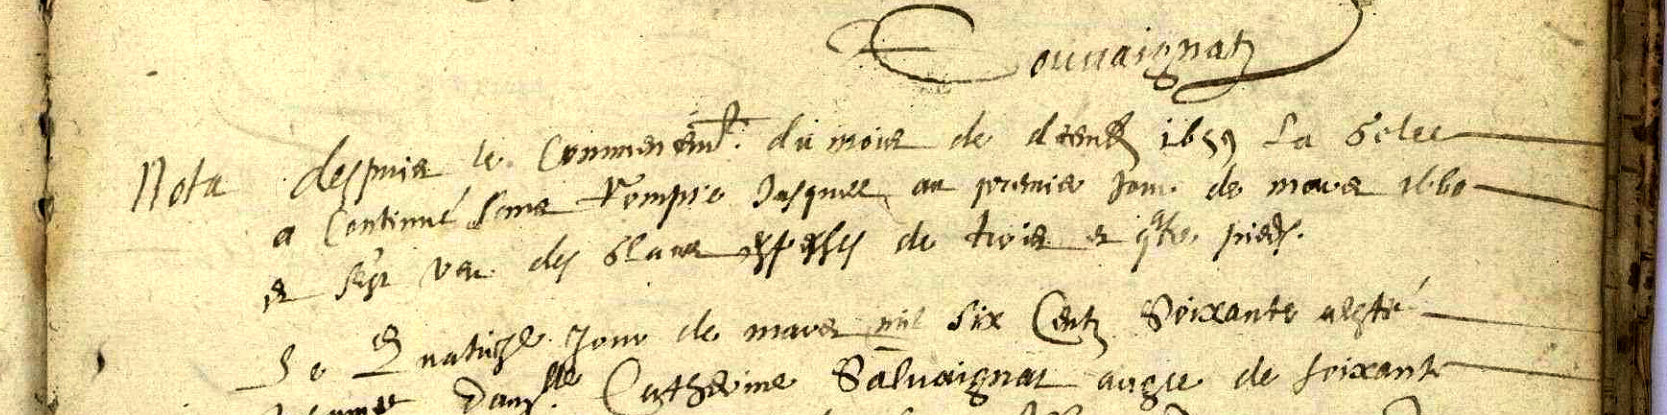 Sauvaignatz
Nota despuis le Commencemt. du mois de decemb 1659 La Gelee
a Continué sans Rompre Jusques au premier Jour de mars 1660
et s'est veu des Glaces espesses de trois et qtre pieds.
Le Quatriesme Jour de mars mil six Centz Soixante a esté
damlle Catherine Salvaignat aagee de soixante